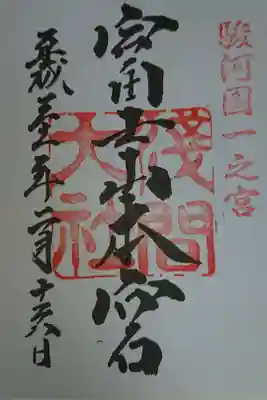 駿河国一之宮
富士山本宮
淺間
大社
平成年月十六日